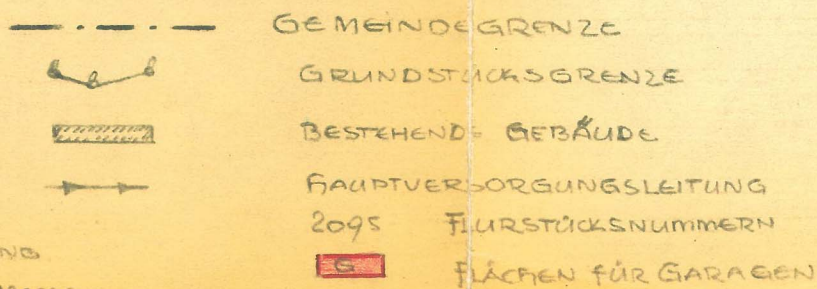 GEMEINDEGRENZE
GRUNDSTÜCKSGRENZE
BESTEHENDE GEBÄUDE
HAUPTVERSORGUNGSLEITUNG
2095 FLURSTÜCKSNUMMERN
G FLÄCHEN FÜR GARAGEN